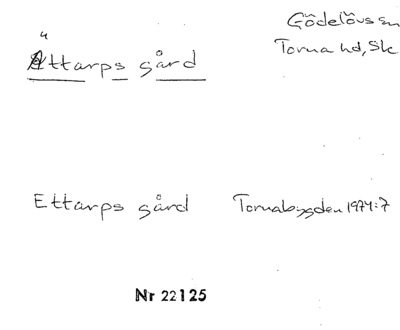 Gödelövs sn
Torna hd, Sk
Ättarps gård
Ettarps gård Tornabygden 1974:7
Nr 22125